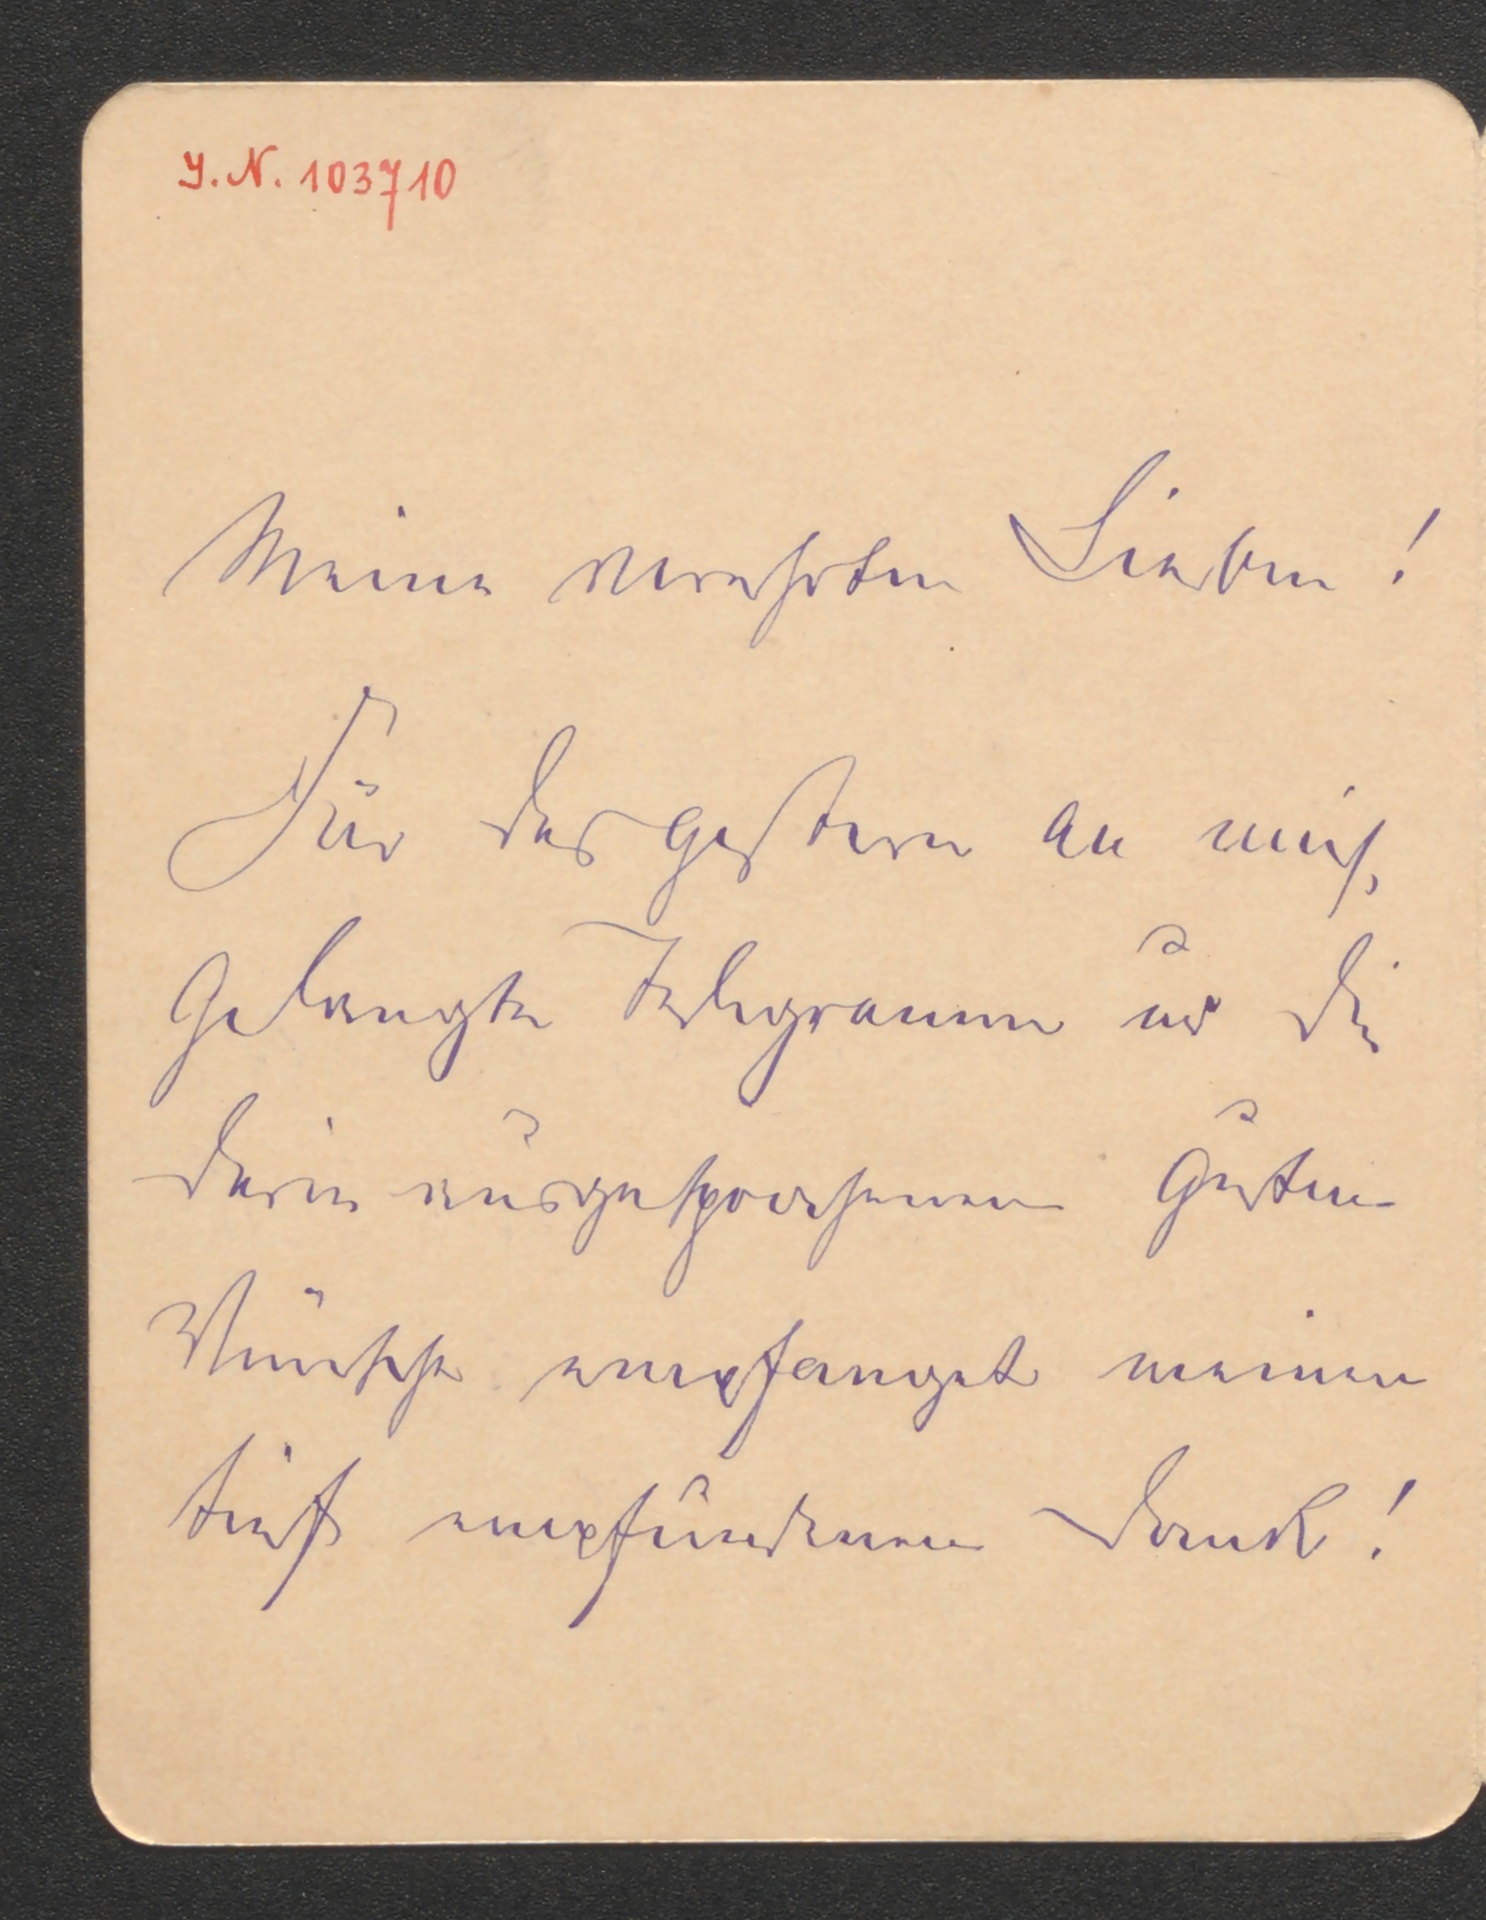 J.N. 103710
Meine verehrten Lieben!
Für das gestern an mich
gelangte Telegramm u die
darin ausgesprochenen guten
Wünsche empfanget meinen
tief empfundenen Dank!